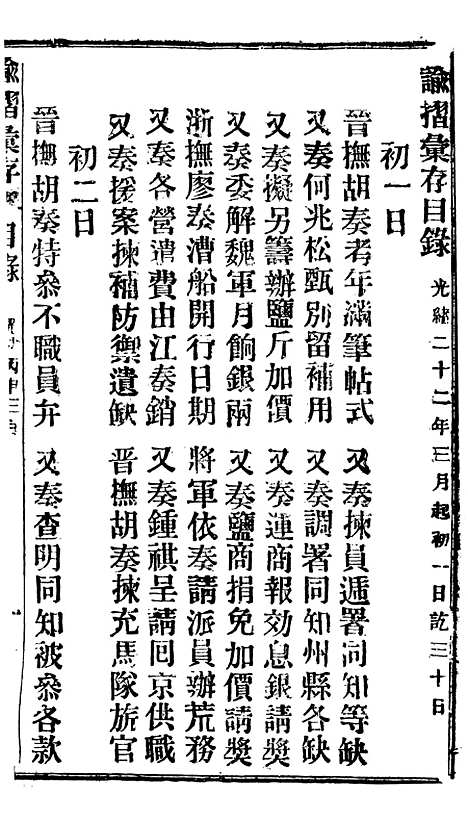 諭摺彙存目錄 光緒二十二年三月起初一日訖三十日
初一日
晉撫胡奏考年滿筆帖式 又奏揀員遞署同知等缺
又奏何兆松甄別留補用 又奏調署同知州縣各缺
又奏擬另籌辦鹽斤加價 又奏運商報効息銀請獎
又奏委解魏軍月餉銀兩 又奏鹽商捐免加價請獎
浙撫廖奏漕船開行日期 將軍依奏請派員辦荒務
又奏各營遣費由江奏銷 又奏鍾祺呈請囘京供職
又奏援案揀補防禦遺缺 晉撫胡奏揀充馬隊旂官
初二日
晉撫胡奏特參不職員弁 又奏查明同知被參各款
諭摺彙存 目錄 丙申三月